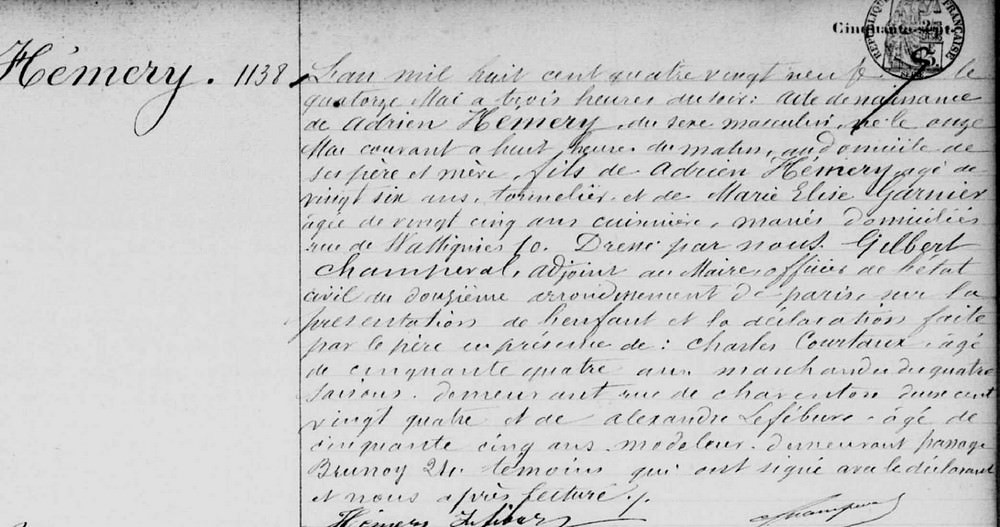 Cinquante-sept
RÉPUBLIQUE FRANÇAISE
Hémery. 1138
L'an mil huit cent quatre vingt neuf le
quatorze Mai a trois heures du soir: acte de naissance
de Adrien Hémery, du sexe masculin, né le onze
Mai courant a huit heures du matin, au domicile de
ses père et mère, fils de Adrien Hémery, agé de
vingt six ans, tonnelier et de Marie Elise Garnier
âgée de vingt cinq ans cuisinière, mariés domiciliés
rue de Wattignies 50. Dressé par nous Gilbert
Champeval, adjoint au Maire, officier de l'état
civil du douzième arrondissement de paris, sur la
présentation de l'enfant et la déclaration faite
par le père en présence de: Charles Courtaux, âgé
de cinquante quatre ans marchand du quatre
saisons demeurant rue de charenton deux cent
vingt quatre et de alexandre Lefébure âgé de
cinquante cinq ans modeleur demeurant passage
Brunoy témoins qui ont signé avec le déclarant
et nous après lecture.
Hémery Lefébure Champeval